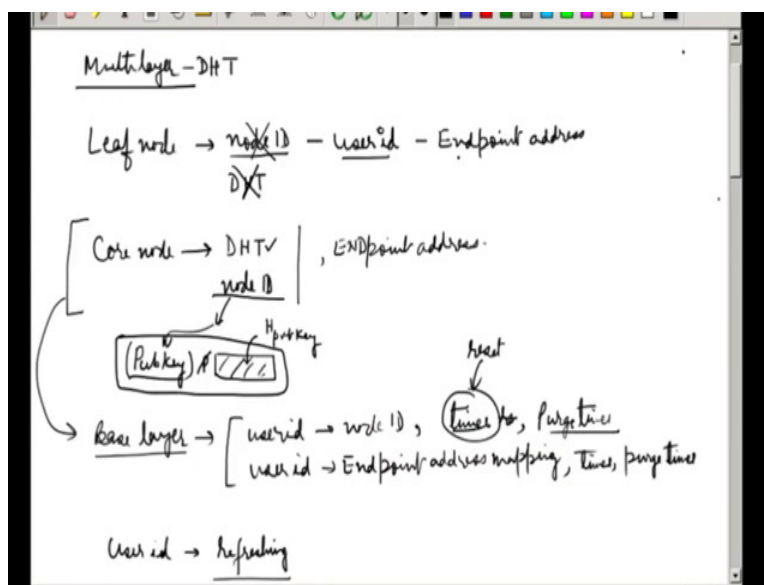 Multilayer - DHT
Leaf node → node ID - userid - Endpoint address
DHT
Core node → DHT✓ , ENDpoint address.
node ID
Hpubkey
(Pubkey)
reset
Base layer → [ userid → node ID, timer, Purge timer
user id → Endpoint address mapping, Timer, purge timer
User id → Refreshing